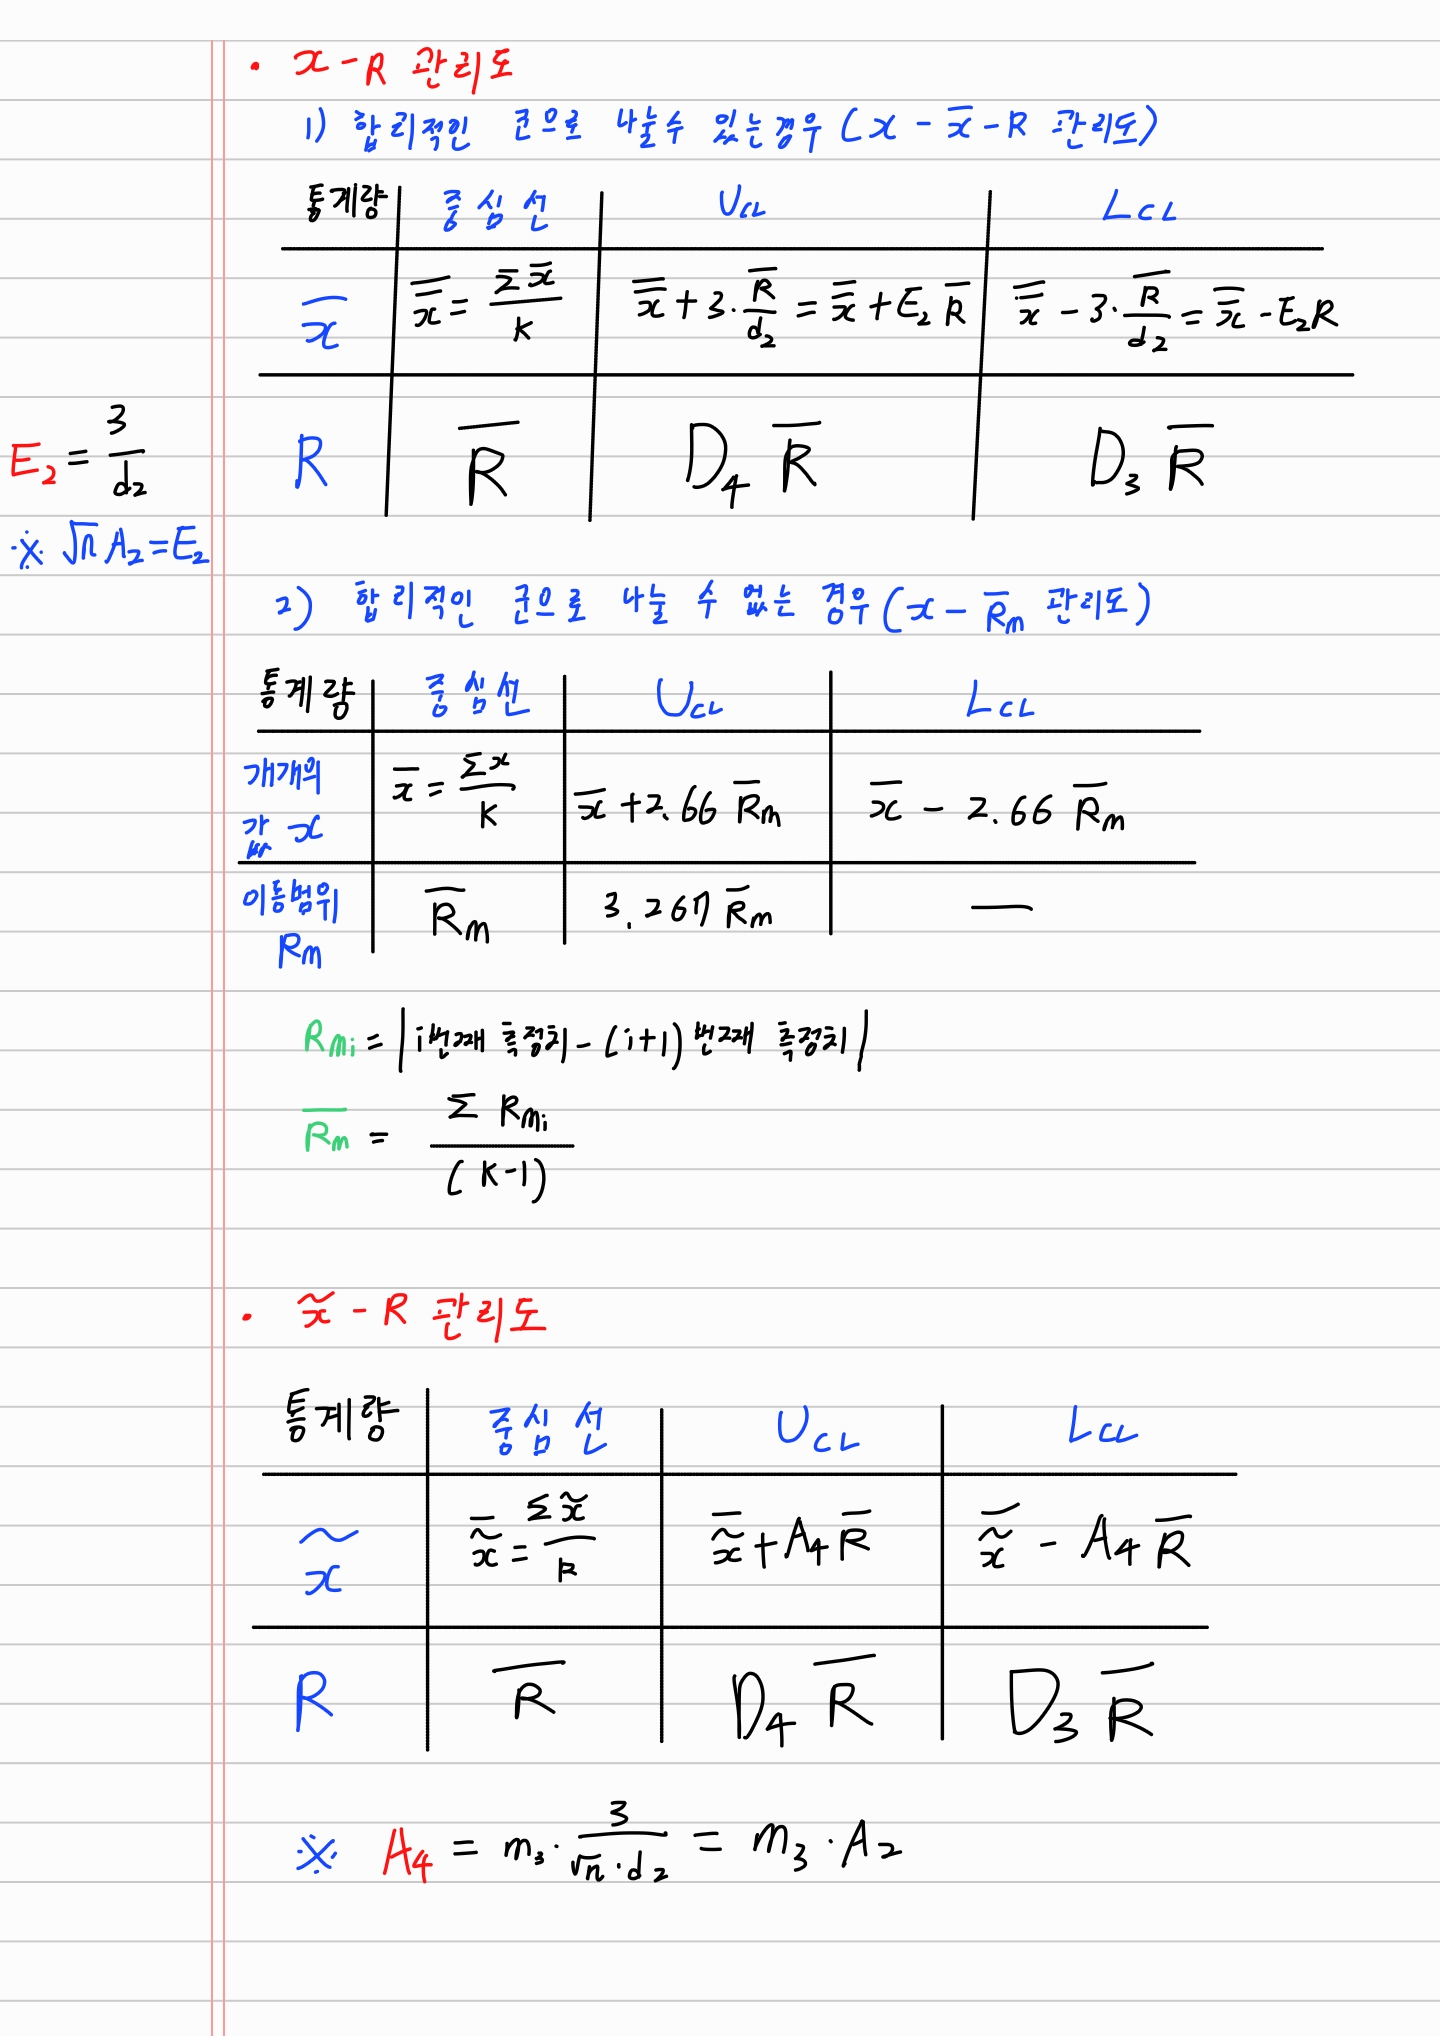 • x - R 관리도
1) 합리적인 군으로 나눌수 있는경우 (x - x̅ - R 관리도)
통계량 중심선 UCL LCL
x̅ x̿ = Σx̅/k x̿ + 3·R̅/d₂ = x̿ + E₂ R̅ x̿ - 3·R̅/d₂ = x̿ - E₂R
R R̅ D₄ R̅ D₃ R̅
E₂ = 3/d₂
※ √n A₂ = E₂
2) 합리적인 군으로 나눌 수 없는 경우 (x - R̅m 관리도)
통계량 중심선 UCL LCL
개개의 값 x x̅ = Σx/k x̅ + 2.66 R̅m x̅ - 2.66 R̅m
이동범위 Rm R̅m 3.267 R̅m —
Rmi = |i번째 측정치 - (i+1)번째 측정치|
R̅m = Σ Rmi / (k-1)
• x̃ - R 관리도
통계량 중심선 UCL LCL
x̃ x̃̅ = Σx̃/k x̃̅ + A₄ R̅ x̃̅ - A₄ R̅
R R̅ D₄ R̅ D₃ R̅
※ A₄ = m₃ · 3/(√n · d₂) = m₃ · A₂